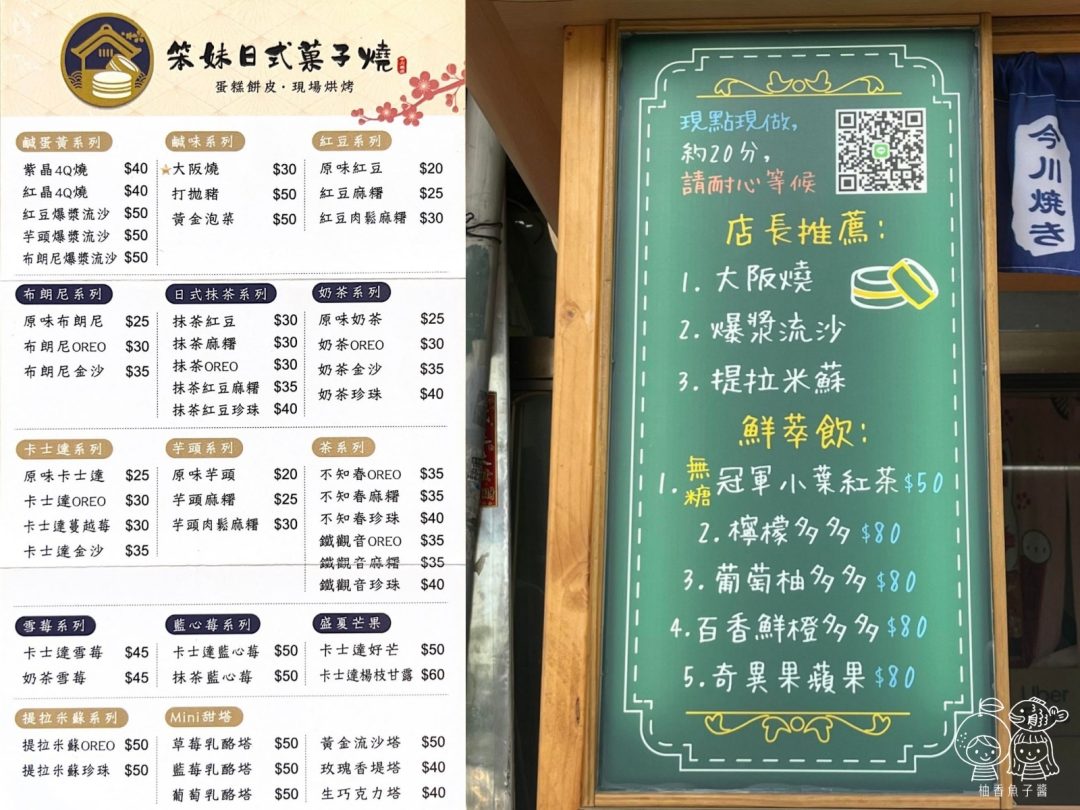 笨妹日式菓子燒
蛋糕餅皮·現場烘烤
鹹蛋黃系列
紫晶4Q燒 $40
紅晶4Q燒 $40
紅豆爆漿流沙 $50
芋頭爆漿流沙 $50
布朗尼爆漿流沙 $50
鹹味系列
大阪燒 $30
打拋豬 $50
黃金泡菜 $50
紅豆系列
原味紅豆 $20
紅豆麻糬 $25
紅豆肉鬆麻糬 $30
布朗尼系列
原味布朗尼 $25
布朗尼OREO $30
布朗尼金沙 $35
日式抹茶系列
抹茶紅豆 $30
抹茶麻糬 $30
抹茶OREO $30
抹茶紅豆麻糬 $35
抹茶紅豆珍珠 $40
奶茶系列
原味奶茶 $25
奶茶OREO $30
奶茶金沙 $35
奶茶珍珠 $40
卡士達系列
原味卡士達 $25
卡士達OREO $30
卡士達蔓越莓 $30
卡士達金沙 $35
芋頭系列
原味芋頭 $20
芋頭麻糬 $25
芋頭肉鬆麻糬 $30
茶系列
不知春OREO $35
不知春麻糬 $35
不知春珍珠 $40
鐵觀音OREO $35
鐵觀音麻糬 $35
鐵觀音珍珠 $40
雪莓系列
卡士達雪莓 $45
奶茶雪莓 $45
藍心莓系列
卡士達藍心莓 $50
抹茶藍心莓 $50
盛夏芒果
卡士達好芒 $50
卡士達楊枝甘露 $60
提拉米蘇系列
提拉米蘇OREO $50
提拉米蘇珍珠 $50
Mini甜塔
草莓乳酪塔 $50
藍莓乳酪塔 $50
葡萄乳酪塔 $50
黃金流沙塔 $50
玫瑰香堤塔 $40
生巧克力塔 $40
現點現做,
約20分,
請耐心等候
店長推薦:
1. 大阪燒
2. 爆漿流沙
3. 提拉米蘇
鮮萃飲:
1. 無糖 冠軍小葉紅茶 $50
2. 檸檬多多 $80
3. 葡萄柚多多 $80
4. 百香鮮橙多多 $80
5. 奇異果蘋果 $80
今川焼き
Uber
柚香魚子醬